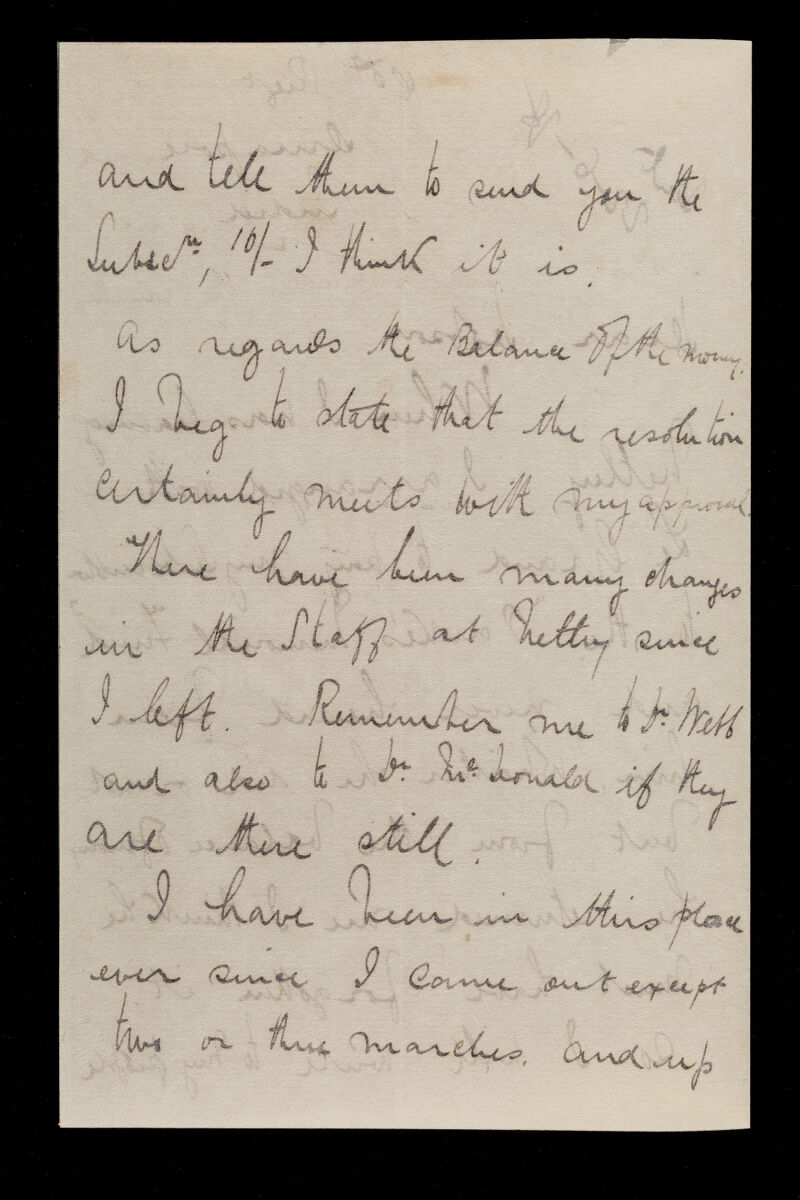 and tell them to send you the
Subscn, 10/- I think it is.
As regards the Balance of the money.
I beg to state that the resolution
certainly meets with my approval.
There have been many changes
in the Staff at Netley since
I left. Remember me to Dr. Webb
and also to Dr. McDonald if they
are there still.
I have been in this place
ever since I came out except
two or three marches. and up